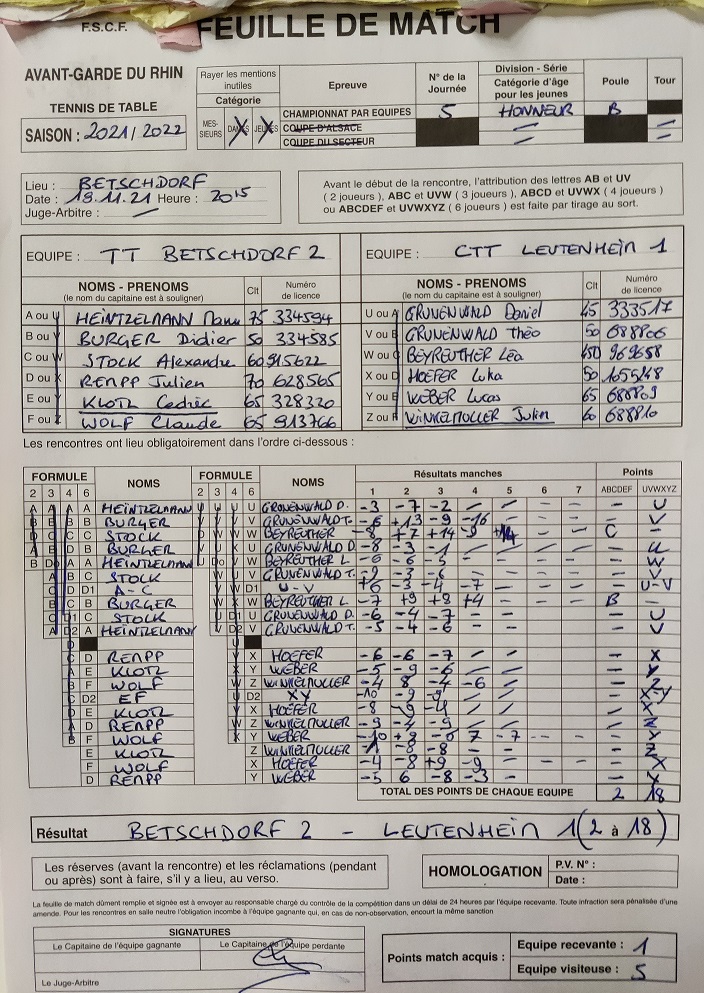 F.S.C.F. FEUILLE DE MATCH
AVANT-GARDE DU RHIN
TENNIS DE TABLE
SAISON : 2021/2022
Rayer les mentions inutiles
Catégorie
MES-SIEURS DAMES JEUNES
Epreuve
CHAMPIONNAT PAR EQUIPES
COUPE D'ALSACE
COUPE DU SECTEUR
N° de la Journée
5
Division - Série
Catégorie d'âge pour les jeunes
HONNEUR
Poule
B
Tour
Lieu : BETSCHDORF
Date : 19.11.21 Heure : 2015
Juge-Arbitre :
Avant le début de la rencontre, l'attribution des lettres AB et UV
( 2 joueurs ), ABC et UVW ( 3 joueurs ), ABCD et UVWX ( 4 joueurs )
ou ABCDEF et UVWXYZ ( 6 joueurs ) est faite par tirage au sort.
EQUIPE : TT BETSCHDORF 2
NOMS - PRENOMS Clt Numéro de licence
(le nom du capitaine est à souligner)
A ou U HEINTZELMANN 75 334594
B ou V BURGER Didier 50 334585
C ou W STOCK Alexandre 60 915622
D ou X REMPP Julien 70 628565
E ou Y KLOTZ Cedric 65 328320
F ou Z WOLF Claude 65 913766
EQUIPE : CTT LEUTENHEIM 1
NOMS - PRENOMS Clt Numéro de licence
(le nom du capitaine est à souligner)
U ou A GRUNENWALD Daniel 45 333517
V ou B GRUNENWALD Théo 50 688806
W ou C BEYREUTHER Léa 969658
X ou D HOEFER Luka 50 1655248
Y ou E WEBER Lucas 65 688809
Z ou F WINKELMULLER Julien 60 688810
Les rencontres ont lieu obligatoirement dans l'ordre ci-dessous :
FORMULE NOMS FORMULE NOMS Résultats manches Points
2 3 4 6 2 3 4 6 1 2 3 4 5 6 7 ABCDEF UVWXYZ
A HEINTZELMANN U GRUNENWALD D. -3 -7 -2 - - - - - U
B BURGER V GRUNENWALD T. -6 +13 -9 -16 - - - - V
C STOCK W BEYREUTHER -8 +7 +14 -9 +14 - - C
B BURGER U GRUNENWALD D -8 -3 -1 - - - - - U
A HEINTZELMANN W BEYREUTHER L -6 -6 -5 - - - - - W
C STOCK V GRUNENWALD T. -3 -6 - - - - - V
D1 A-C D1 U-V +6 -3 -4 -7 - - - - U-V
B BURGER W BEYREUTHER L -7 +9 +8 +4 - - - B -
C STOCK U GRUNENWALD D -6 -4 -7 - - - - - U
A HEINTZELMANN V GRUNENWALD T. -5 -4 -6 - - - - - V
D REMPP X HOEFER -6 -6 -7 - - - - - X
E KLOTZ Y WEBER -5 -9 -6 - - - - - Y
F WOLF Z WINKELMULLER -4 8 -4 -6 - - - - Z
D2 EF D2 XY -10 -9 -9 - - - - - X-Y
E KLOTZ X HOEFER -8 -9 -4 - - - - - X
D REMPP Z WINKELMULLER -9 -4 -9 - - - - - Z
F WOLF Y WEBER -10 +9 -8 7 -7 - - - Y
E KLOTZ Z WINKELMULLER -8 -8 - - - - - Z
F WOLF X HOEFER -4 -8 +9 -9 - - - - X
D REMPP Y WEBER -5 6 -8 -3 - - - - Y
TOTAL DES POINTS DE CHAQUE EQUIPE 2 18
Résultat BETSCHDORF 2 - LEUTENHEIM 1 (2 à 18)
Les réserves (avant la rencontre) et les réclamations (pendant
ou après) sont à faire, s'il y a lieu, au verso.
HOMOLOGATION
P.V. N° :
Date :
La feuille de match dûment remplie et signée est à envoyer au responsable chargé du contrôle de la compétition dans un délai de 24 heures par l'équipe recevante. Toute infraction sera pénalisée d'une
amende. Pour les rencontres en salle neutre l'obligation incombe à l'équipe gagnante qui, en cas de non-observation, encourt la même sanction
SIGNATURES
Le Capitaine de l'équipe gagnante Le Capitaine de l'équipe perdante
Le Juge-Arbitre
Points match acquis :
Equipe recevante : 1
Equipe visiteuse : 5